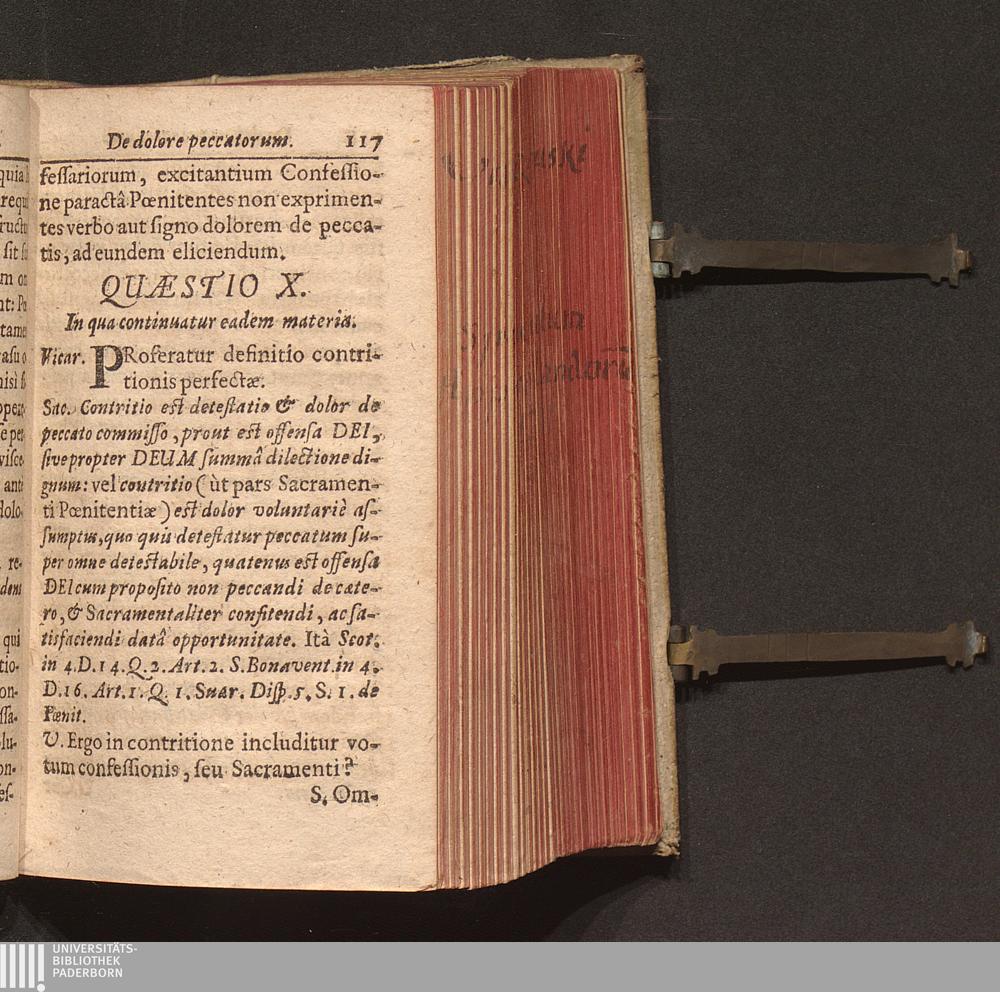 De dolore peccatorum. 117
feſſariorum, excitantium Confeſſio-
ne paractâ Pœnitentes non exprimen-
tes verbo aut ſigno dolorem de pecca-
tis, ad eundem eliciendum.
QUÆSTIO X.
In qua continuatur eadem materia.
Vicar. PRoferatur definitio contri-
tionis perfectæ.
Sac. Contritio eſt deteſtatio & dolor de
peccato commiſſo, prout eſt offenſa DEI,
ſive propter DEUM ſummâ dilectione di-
gnum: vel contritio (ùt pars Sacramen-
ti Pœnitentiæ) eſt dolor voluntariè aſ-
ſumptus, quo quis deteſtatur peccatum ſu-
per omne deteſtabile, quatenus eſt offenſa
DEI cum propoſito non peccandi de cæte-
ro, & Sacramentaliter confitendi, ac ſa-
tisfaciendi datâ opportunitate. Ità Scot.
in 4. D. 14. Q. 2. Art. 2. S. Bonavent. in 4.
D. 16. Art. 1. Q. 1. Suar. Diſp. 5. S. 1. de
Pœnit.
V. Ergo in contritione includitur vo-
tum confeſſionis, ſeu Sacramenti?
S. Om-
UNIVERSITÄTS-
BIBLIOTHEK
PADERBORN